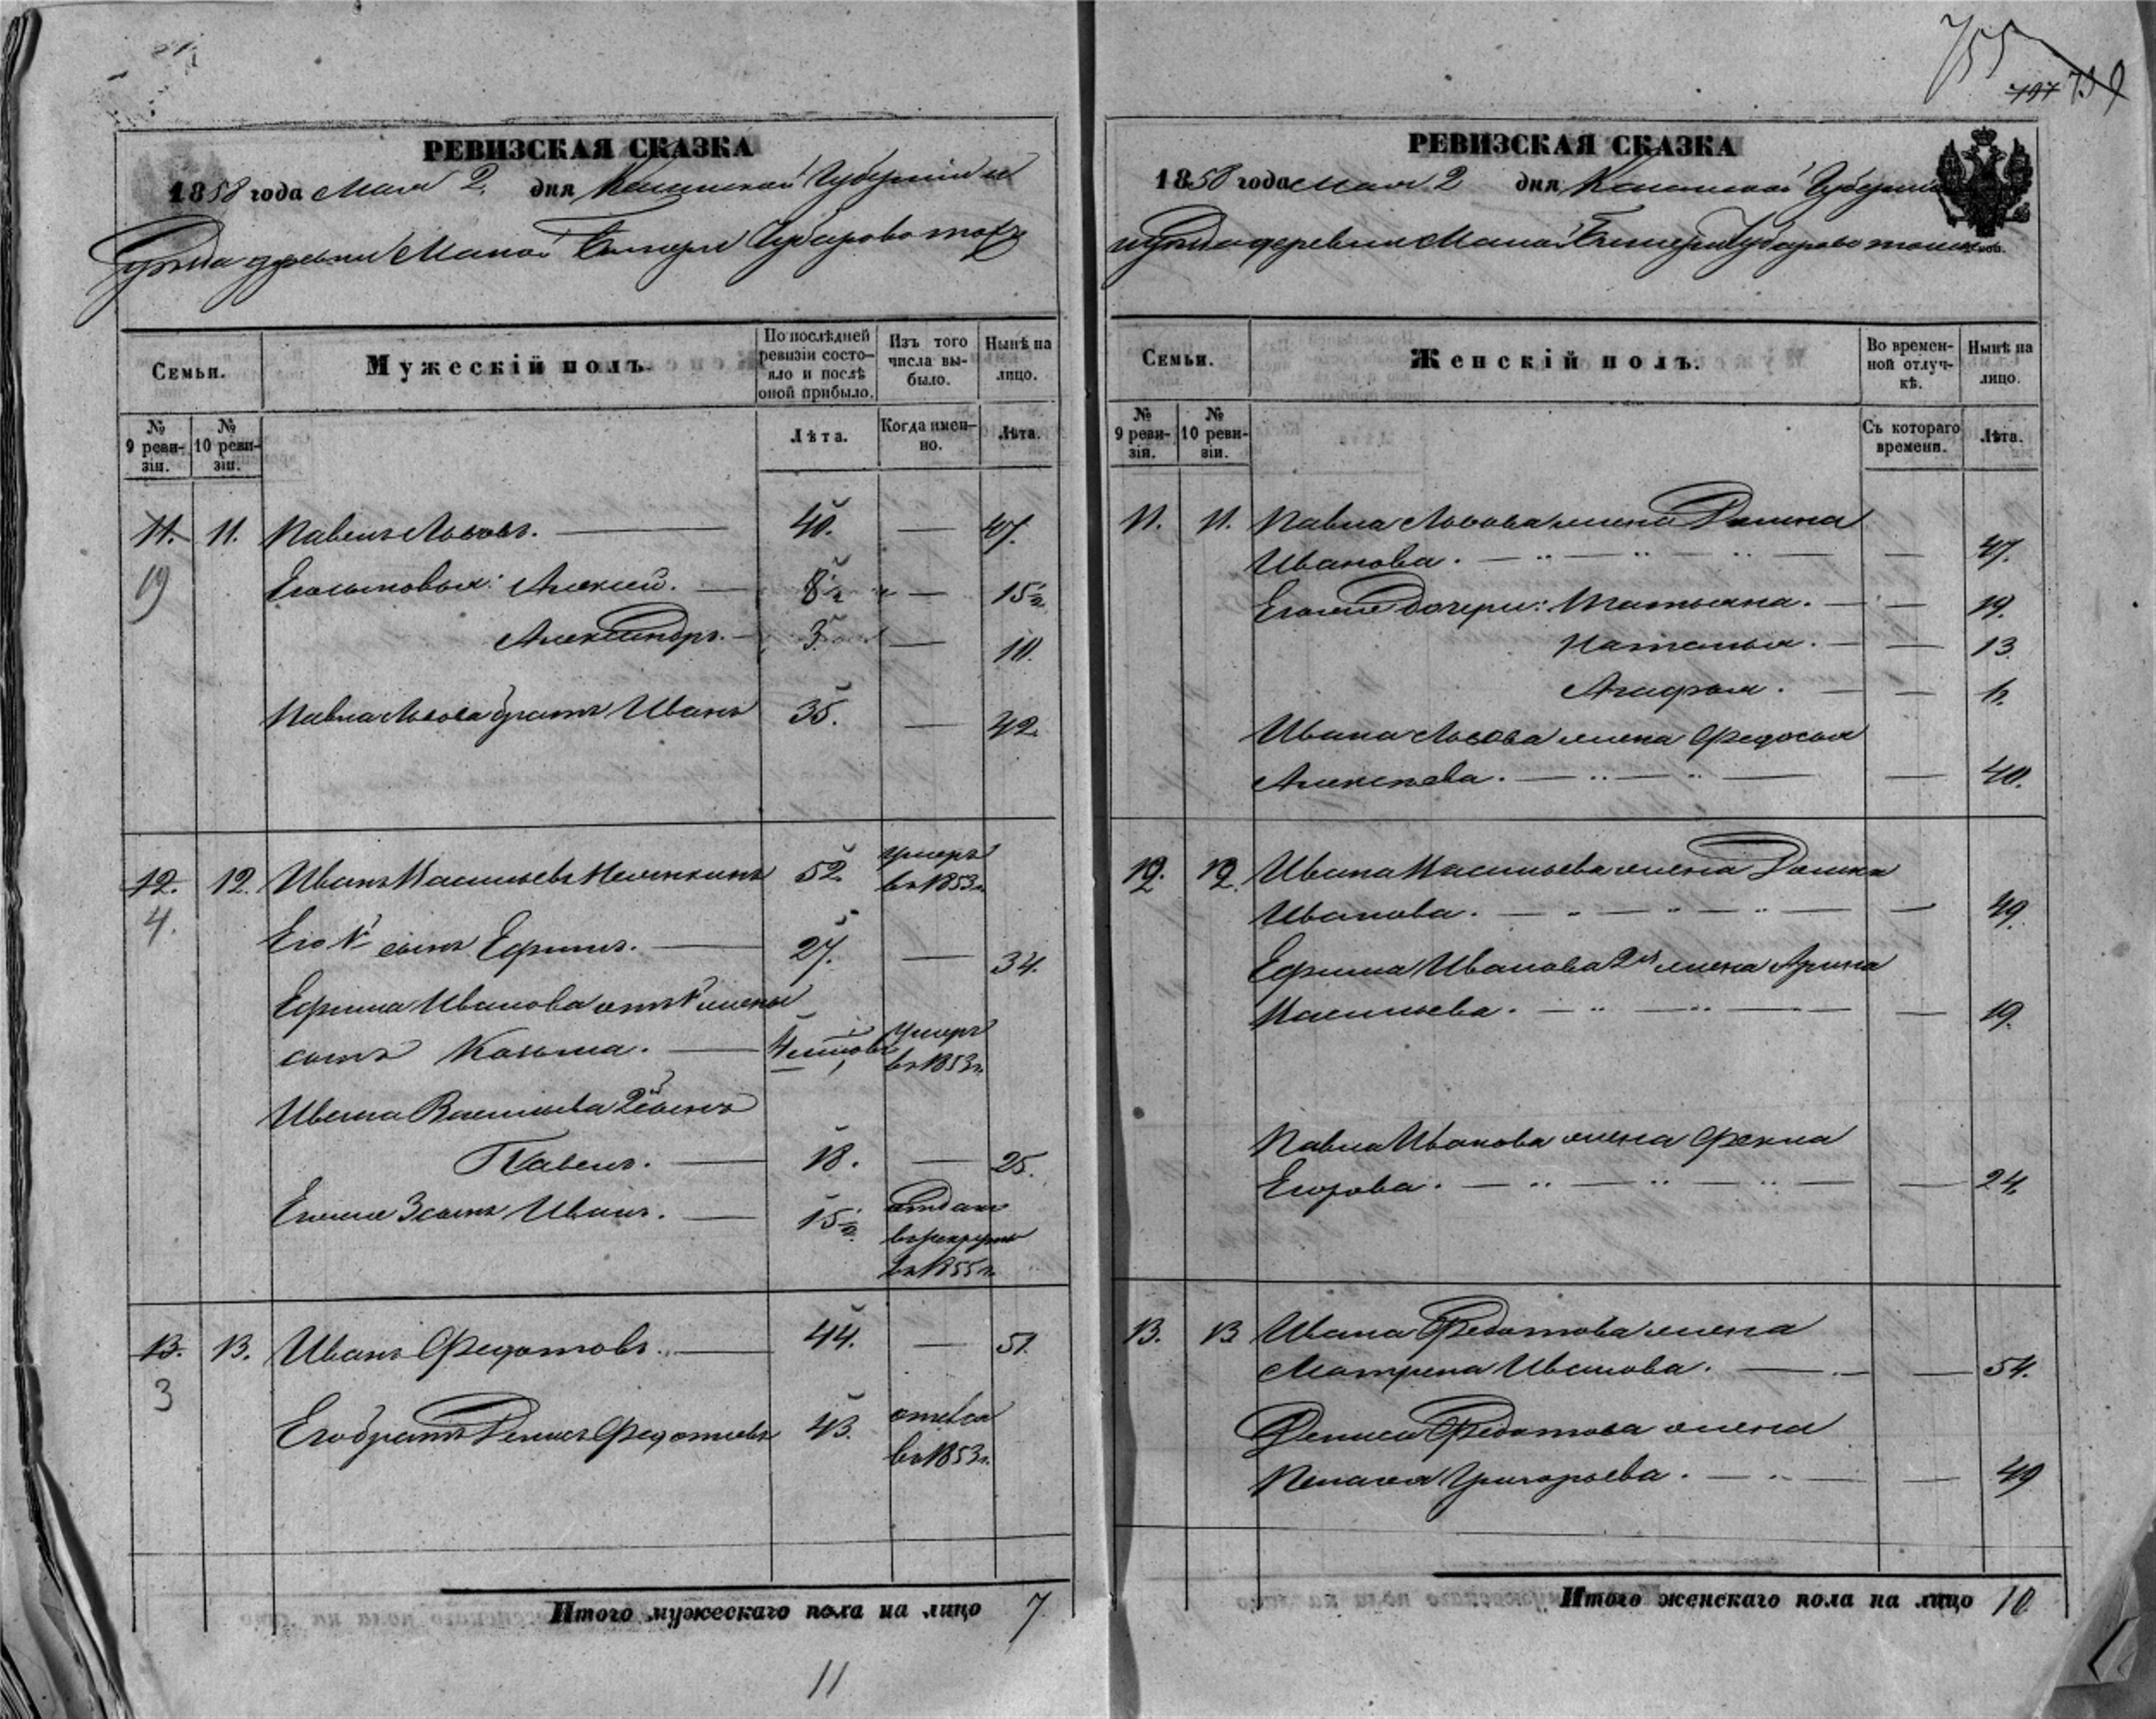 755
797 759
РЕВИЗСКАЯ СКАЗКА
1858 года Мая 2 дня Казанской Губернии и
Уѣзда деревни Малой
Семьи.
Мужескій полъ.
По послѣдней ревизіи состояло и послѣ оной прибыло.
Изъ того числа выбыло.
Нынѣ на лицо.
№ 9 ревизіи.
№ 10 ревизіи.
Лѣта.
Когда именно.
Лѣта.
11. 11. Павелъ Львовъ. 40. 47.
19 Его сыновья: Алексѣй. 8½ 15½
Александръ. 3. 10.
Павла Львова братъ Иванъ 35. 42.
12. 12. Иванъ Васильевъ 52. умеръ
4. въ 1853 г.
Его 1й сынъ Ефимъ. 27. 34.
Ефима Иванова отъ 1й жены
сынъ Козьма. умеръ
въ 1853 г.
Ивана Васильева 2й сынъ
Павелъ. 18. 25.
Его же 3 сынъ Иванъ. 15½ отданъ
въ рекруты
въ 1855 г.
13. 13. Иванъ Федотовъ. 44. 51.
3
Его братъ Денисъ Федотовъ 43.
въ 1853 г.
Итого мужескаго пола на лицо 7
11
РЕВИЗСКАЯ СКАЗКА
1858 года Мая 2 дня Казанской Губерніи
и уѣзда деревни Малой
Семьи.
Женскій полъ.
Во временной отлучкѣ.
Нынѣ на лицо.
№ 9 ревизіи.
№ 10 ревизіи.
Съ котораго времени.
Лѣта.
11. 11. Павла Львова жена
Иванова. 47.
Его же дочери: Татьяна. 19.
Наталья. 13
Агафья.
Ивана Львова жена Федосья
Алексѣева. 40.
12. 12. Ивана Васильева жена
Иванова. 49.
Ефима Иванова 2я жена Арина
Васильева. 19.
Павла Иванова жена Фекла
Егорова. 24.
13. 13 Ивана Федотова жена
Матрена Иванова. 54.
Дениса Федотова жена
Пелагея Григорьева. 49
Итого женскаго пола на лицо 10